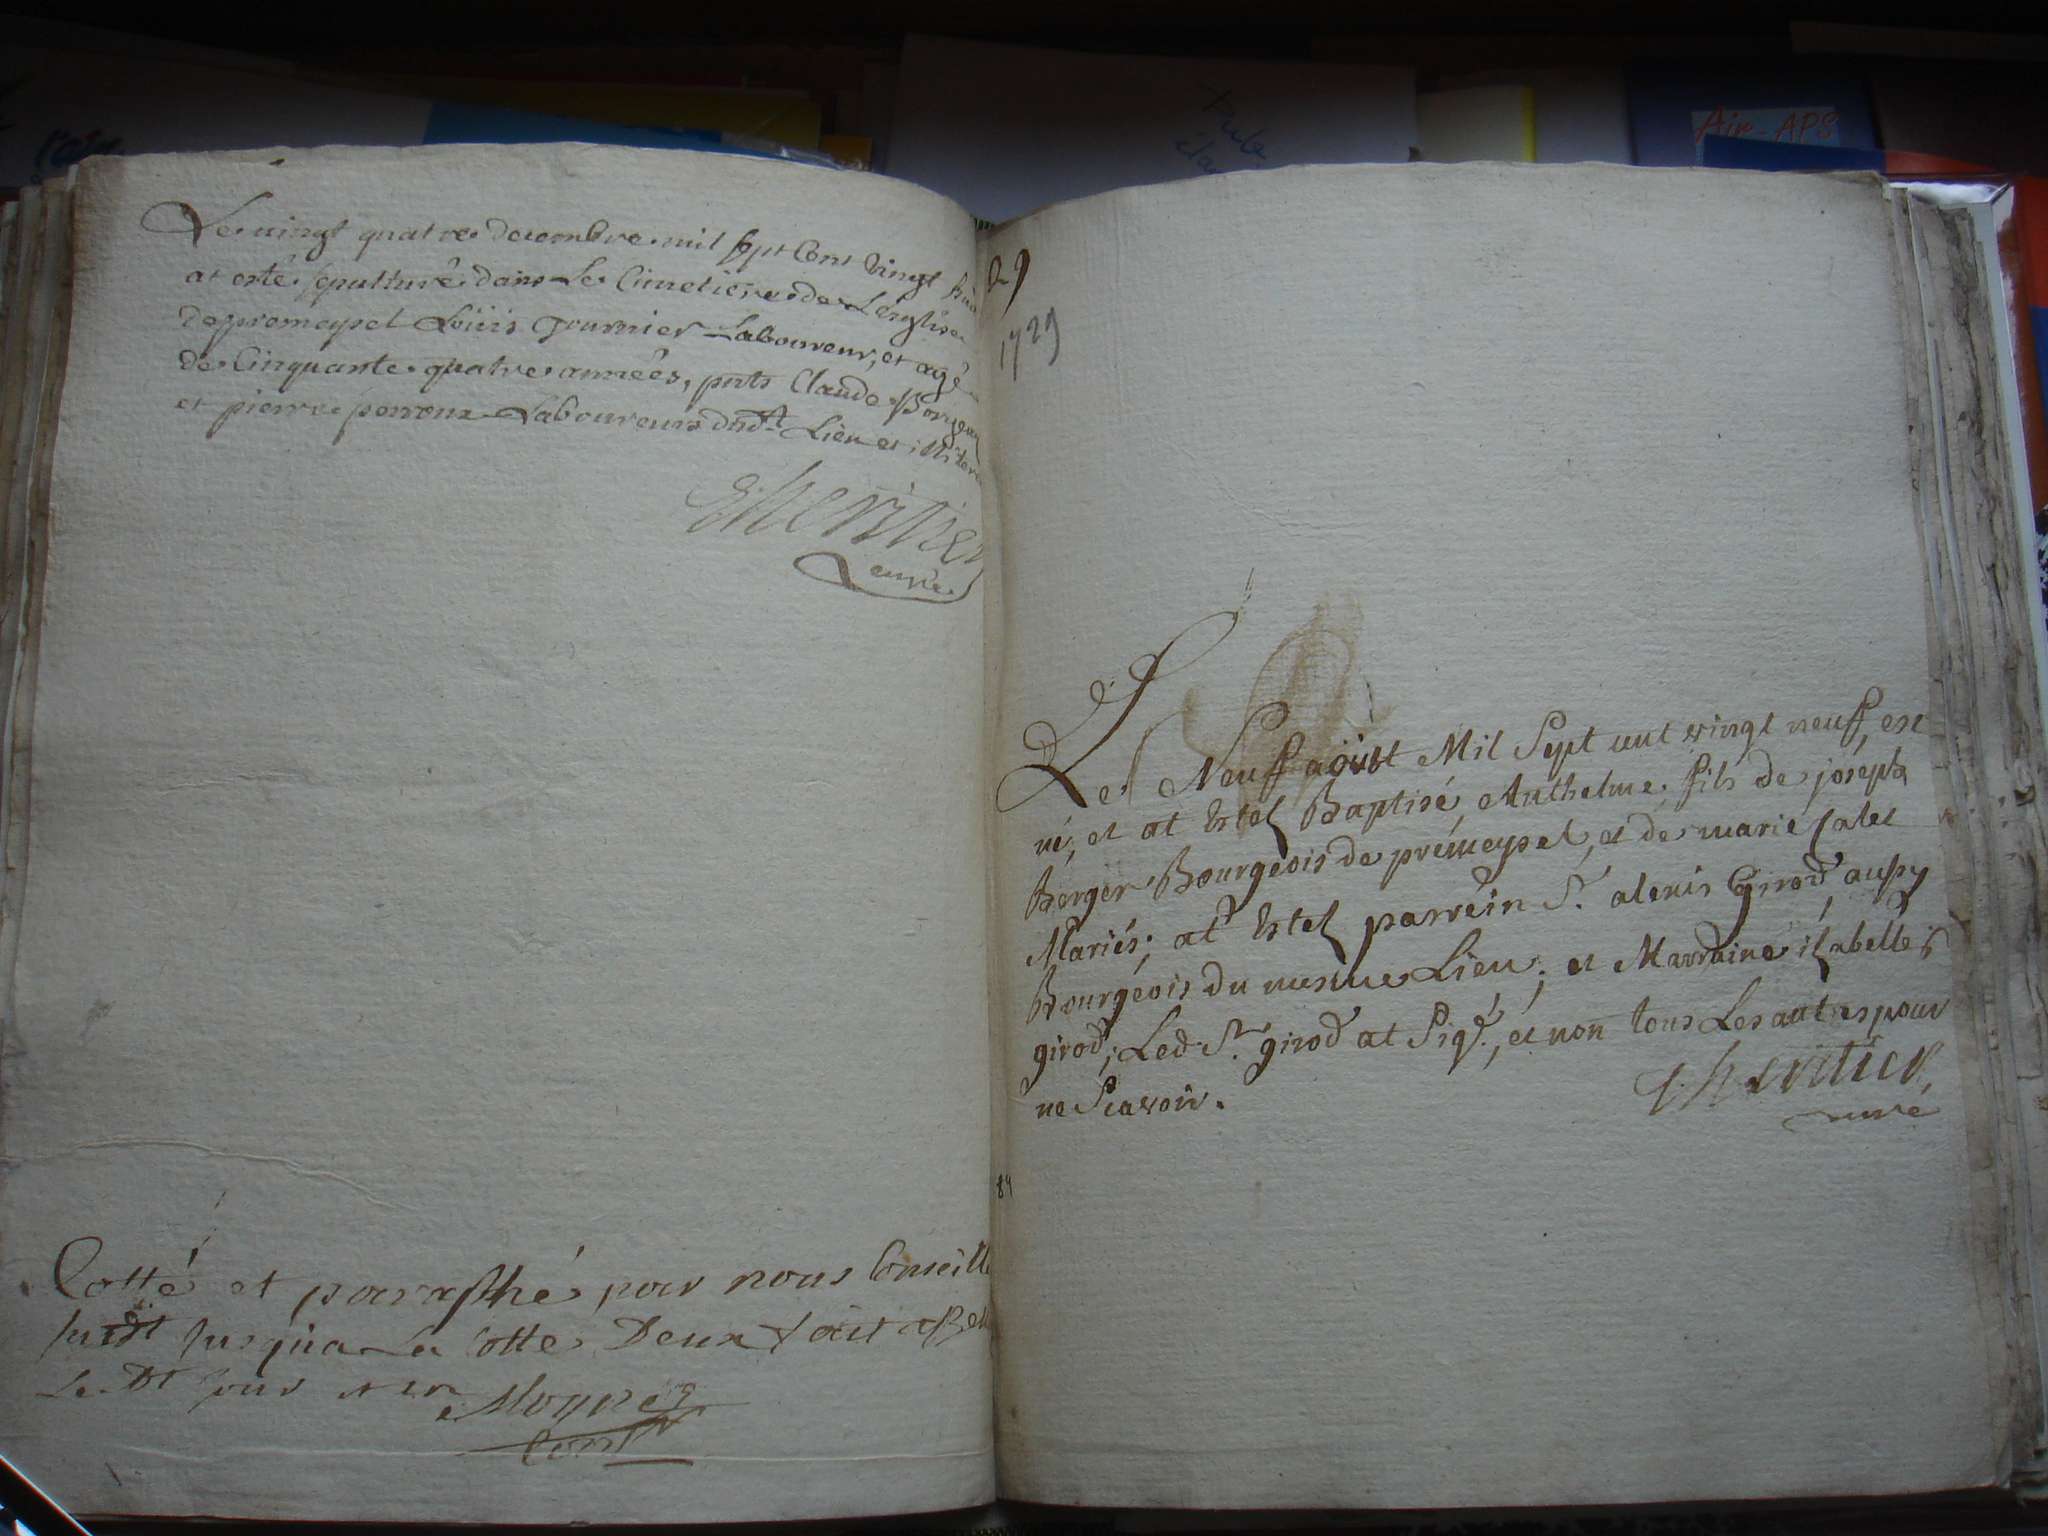 Le vingt quatre decembre mil sept Cent vingt huit
at esté sepulturé dans Le Cimetiere de L'esglise
de premeysel Loüis Tournier Laboureur, et agé
de Cinquante quatre années, pnts Claude
et pierre perroux Laboureurs dud.t Lieu et illiteré
Lheritier
Curé
Cotté et paraphé par nous Conseille
susdt jusqua La Cotte Deux fait a Bel
Le dt jour et an
29
1729
Le Neuf aoüst Mil Sept cent vingt neuf, est
né, et at Estez Baptisé, Anthelme fils de joseph
Berger Bourgeois de prémeysel, et de marie
Mariés; at Estez parréin S.r alexis Girod, aussy
Bourgéois du mesme Lieu; et Marraine isabelle
girod, Led. S.r girod at Sigé, et non tous Les autres pour
ne Scavoir.
Lheritier,
curé
84
Air-APS